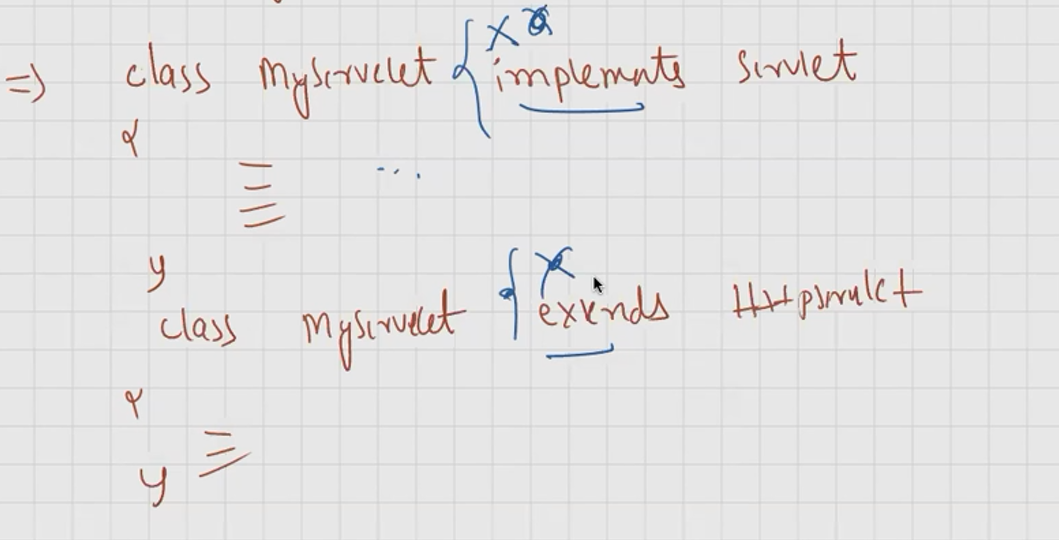 X
=> class MyServelet { implements servlet
{
...
}
X
class MyServelet { extends Httpservlet
{
}